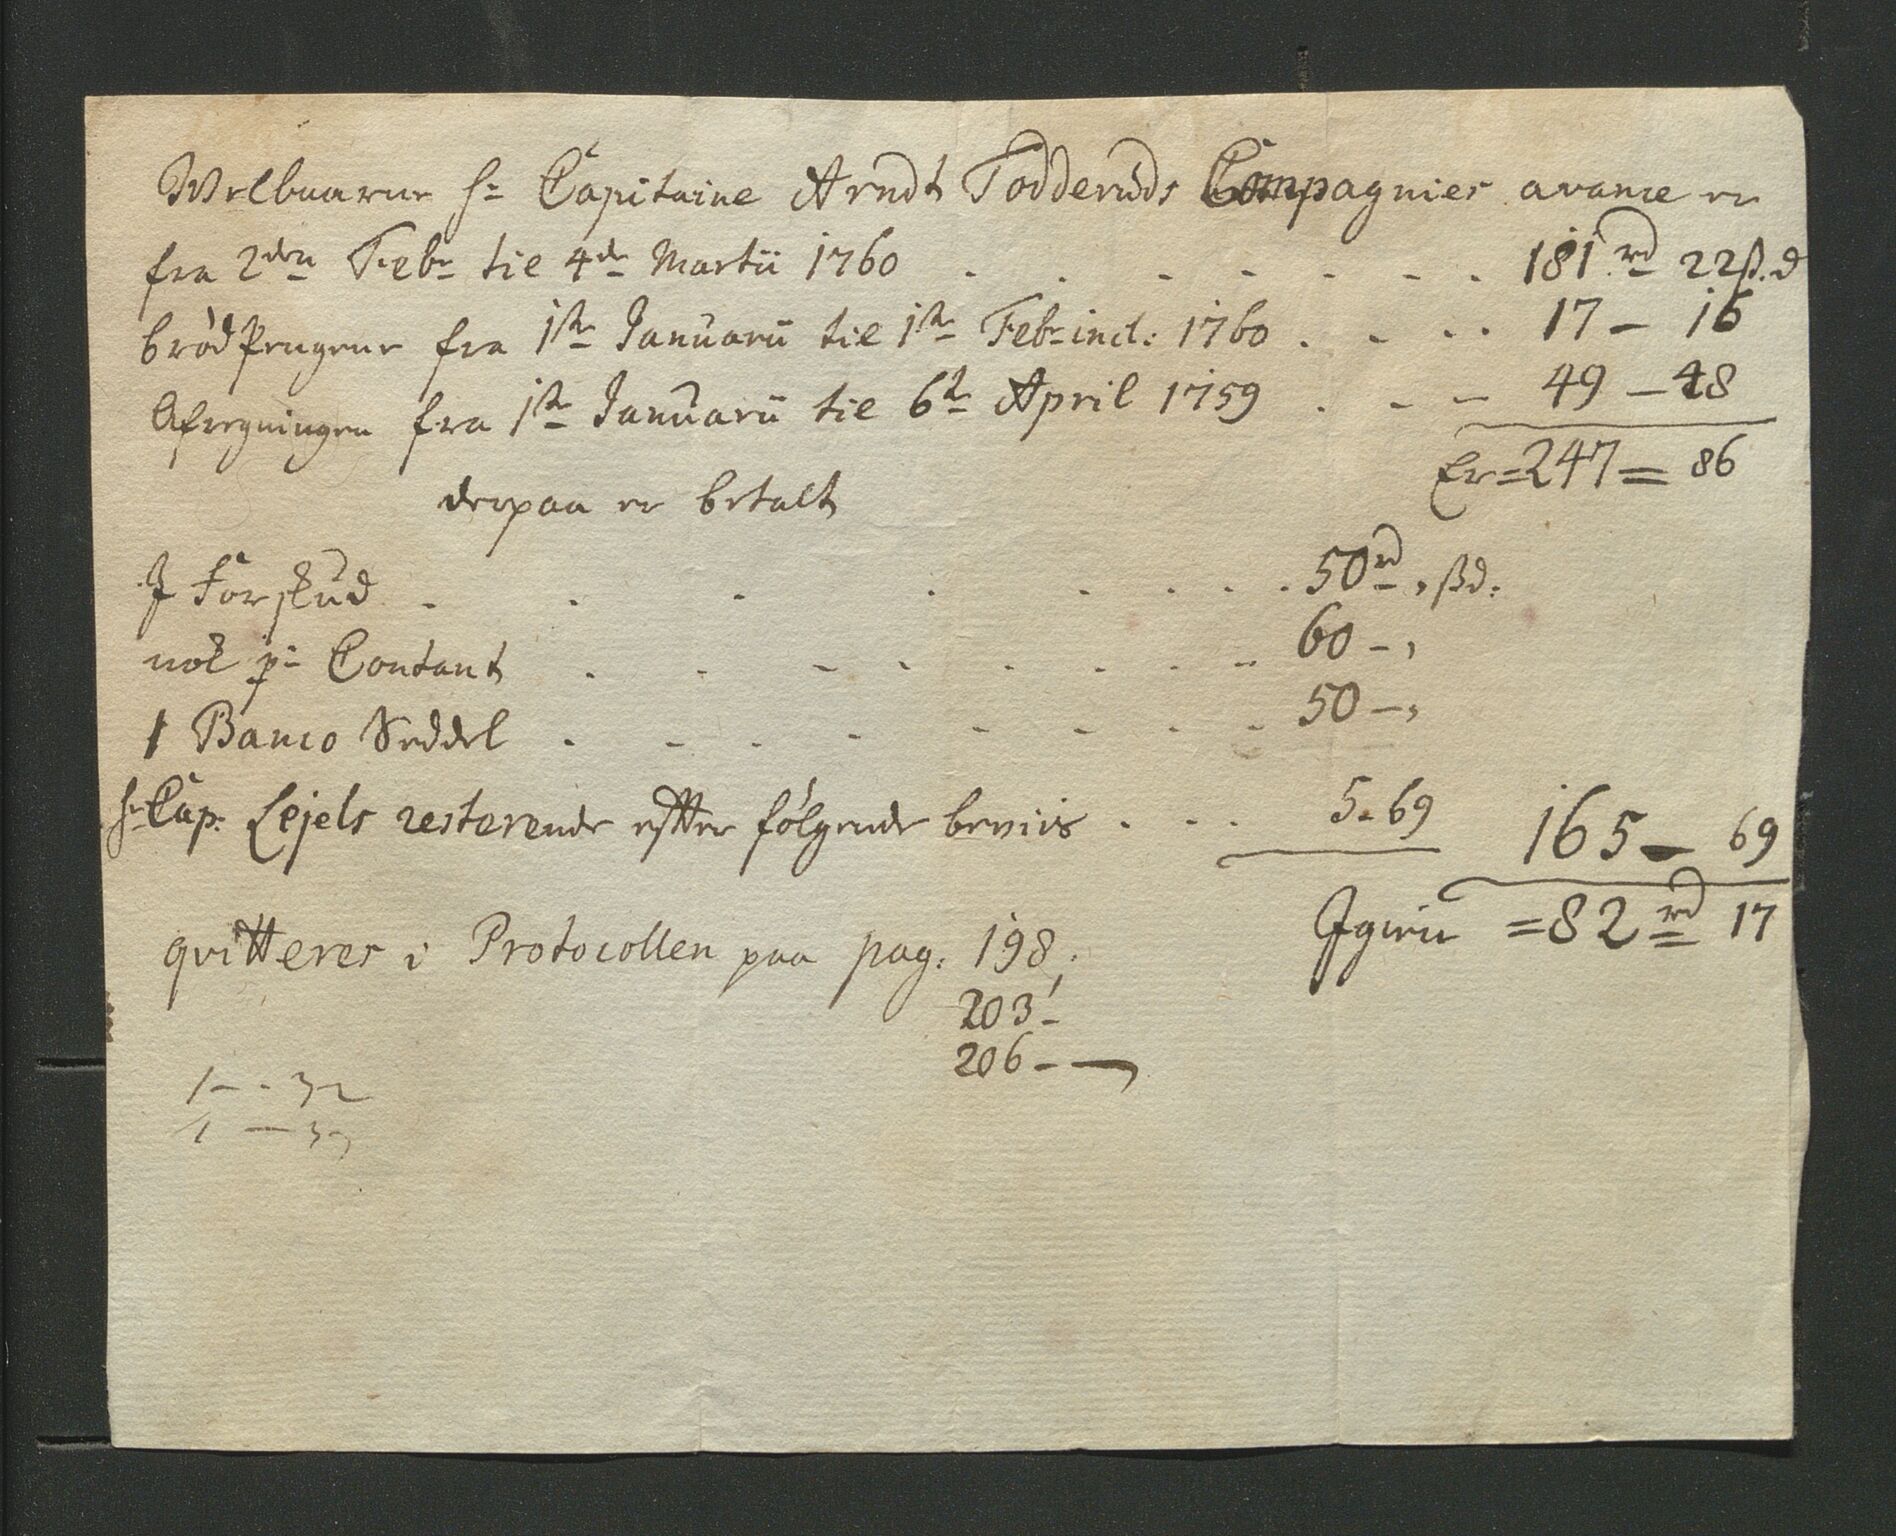 Welbaarne hr Capitaine Arndt Todderuds Compagnies avance er
fra 2den Febr til 4de Martii 1760 . . . . . . . 181 rd 22 ß. d
brød Pengene fra 1ste Januarii til 1ste Febr incl: 1760 . . . . 17 – 16
Afregningen fra 1ste Januarii til 6te April 1759 . . . 49 – 48
Er = 247 = 86
derpaa er betalt
J Forskud . . . . . . . . 50 rd , ß d:
nok pr Contant . . . . . . . . 60 – ,
1 Banco Seddel . . . . . . . . 50 – ,
hr Cap: Lejels resterende efter følgende beviis . . . 5. 69 165 – 69
Igien = 82 rd 17
qvitteres i Protocollen paa pag: 198,
203 –
206 – –
1 – . 32
1 – 32